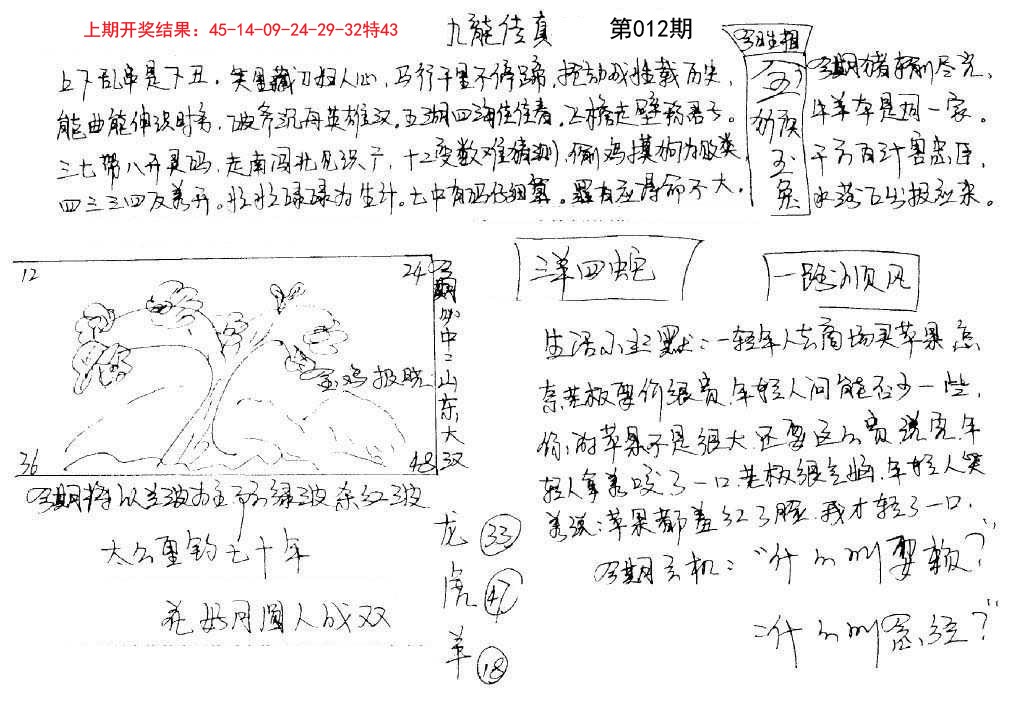 上期开奖结果：45-14-09-24-29-32特43
九龍传真
第012期
今期生相
上下乱串是下丑．笑里藏刀妇人心，马行千里不停蹄，
能曲能伸识时务，破斧沉舟英雄汉．五湖四海任住看．飞檐走壁
三七带八开灵码，走南闯北见识广，十二变数难猜测，偷鸡摸狗为败类，
四三三四反着开。忙忙碌碌为生计。七中有码仔细算。
命不大，
金鸡
玉兔
今期猪
尽光、
牛羊本是同一家。
千方百计害忠臣、
水落石出报应来。
12
24
36
48
玉鸡报晓
今期必中二山东大汉
三羊四蛇
一路顺风
今期将以兰波主
绿波杂红波
太公垂钓七十年
花好月圆人成双
龙 33
虎 47
羊 18
生活小幽默：一轻年人去商场买苹果，怎
奈老板要价很贵，年轻人问能否少一些，
你的苹果不是很大，还要这么贵，说完，年
轻人拿着咬了一口，老板很气恼，年轻人笑
着说：苹果都羞红了脸，我才轻了一口．
今期玄机：“什么叫要赖？”
：什么叫
？”